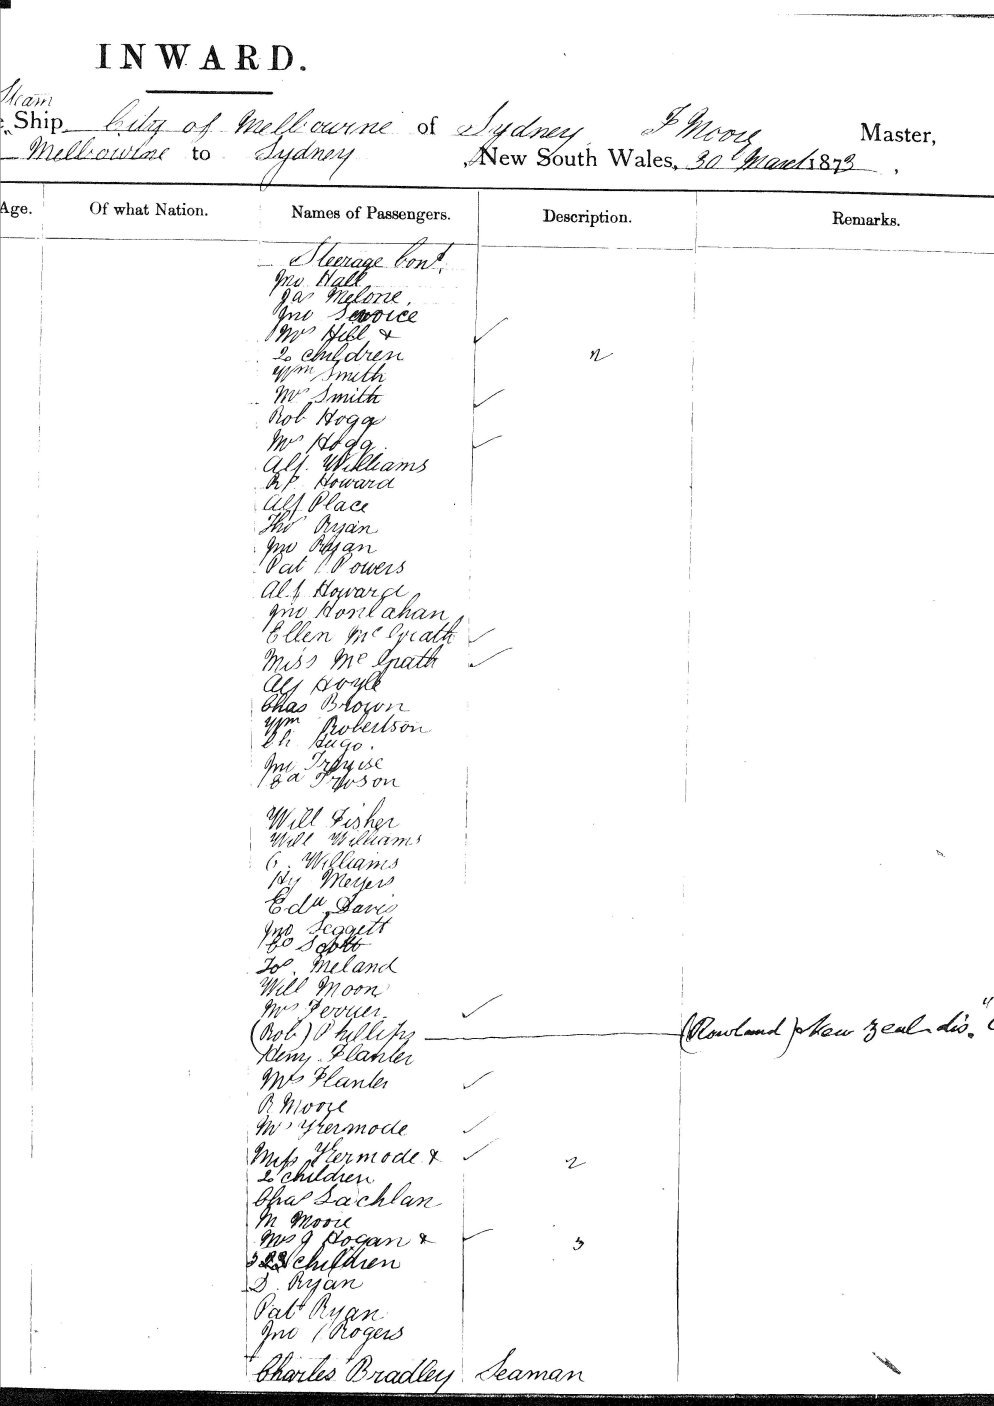 INWARD.
Steam
Ship City of Melbourne of Sydney F Moore Master,
Melbourne to Sydney , New South Wales, 30 March 1873 .
Age. Of what Nation. Names of Passengers. Description. Remarks.
Steerage Cont.
Jno Hall
Jas Melone.
Jno
Mrs Hill &
2 children 2
Wm Smith
Mrs Smith
Rob Hogg
Mrs Hogg
Alf. Williams
Howard
Alf Place
Tho Ryan
Jno Ryan
Pat Powers
Alf Howard
Jno Honlahan
Ellen Mc Grath
Miss Mc Grath
Alf Hoyle
Chas Brown
Wm Robertson
Hugo.
Jno
Will Fisher
Will Williams
Williams
Hy Meyers
Edw Davis
Jno Leggett
Scott
Jos. Meland
Will Moon
Mrs Ferrier
(Rob) Phillips (Rowland) New Zeal
Heny Flanter
Mrs Flanter
R Moore
Mrs Kermode
Miss Kermode & 2
2 children
Chas Lachlan
M Moore
Mrs J Hogan & 3
3 children
D Ryan
Pat Ryan
Jno Rogers
Charles Bradley Seaman